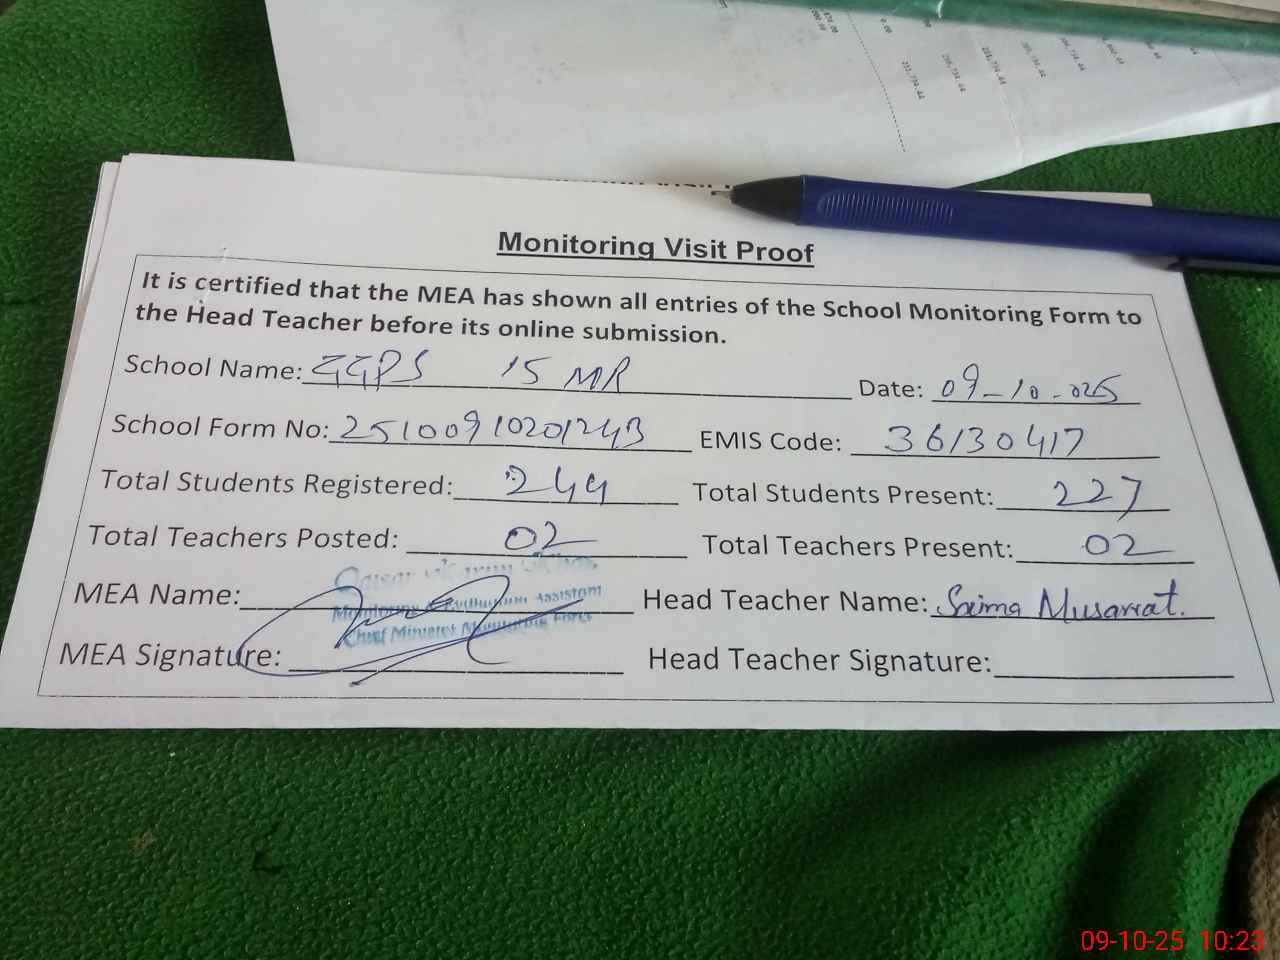 Monitoring Visit Proof
It is certified that the MEA has shown all entries of the School Monitoring Form to
the Head Teacher before its online submission.
School Name: GGPS 15 MR Date: 09-10-025
School Form No: 25100910201243 EMIS Code: 36130417
Total Students Registered: 244 Total Students Present: 227
Total Teachers Posted: 02 Total Teachers Present: 02
MEA Name: Head Teacher Name: Saima Musarrat.
Monitoring Assistant
Chief Minister Monitoring Force
MEA Signature: Head Teacher Signature:
09-10-25 10:23